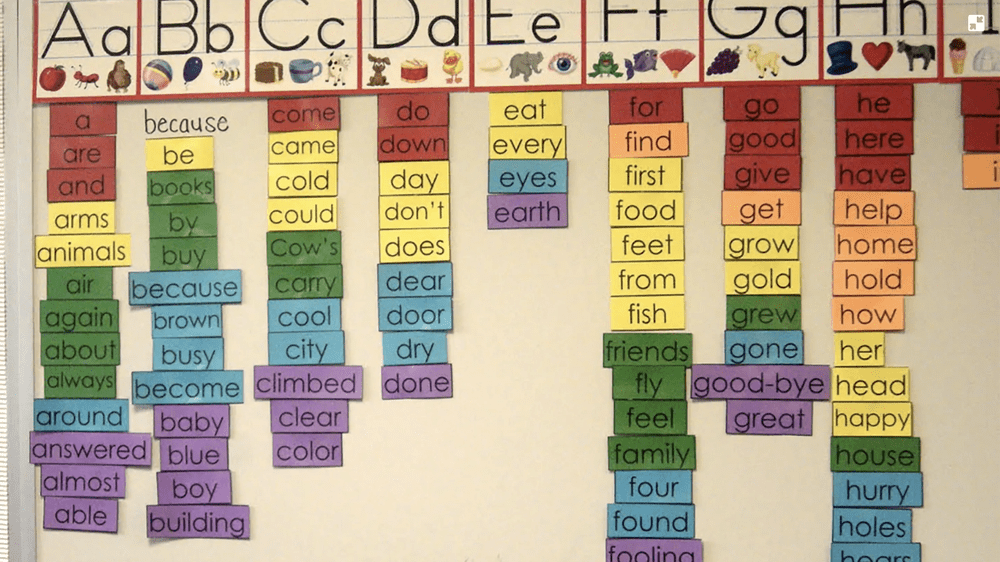 Aa
a
are
and
arms
animals
air
again
about
always
around
answered
almost
able
Bb
because
be
books
by
buy
because
brown
busy
become
baby
blue
boy
building
Cc
come
came
cold
could
Cow's
carry
cool
city
climbed
clear
color
Dd
do
down
day
don't
does
dear
door
dry
done
Ee
eat
every
eyes
earth
Ff
for
find
first
food
feet
from
fish
friends
fly
feel
family
four
found
fooling
Gg
go
good
give
get
grow
gold
grew
gone
good-bye
great
Hh
he
here
have
help
home
hold
how
her
head
happy
house
hurry
holes
hears